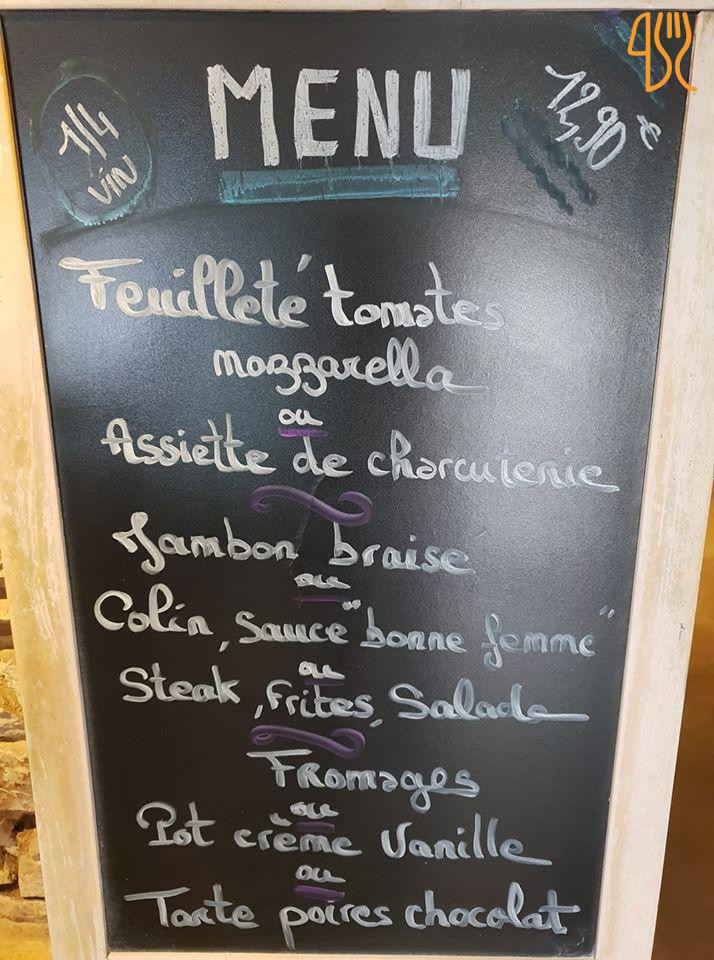 1/4
vin
MENU
12,90 €
Feuilleté tomates
mozzarella
ou
Assiette de charcuterie
Jambon braisé
ou
Colin, sauce "bonne femme"
ou
Steak, frites, Salade
Fromages
ou
Pot crème Vanille
ou
Tarte poires chocolat